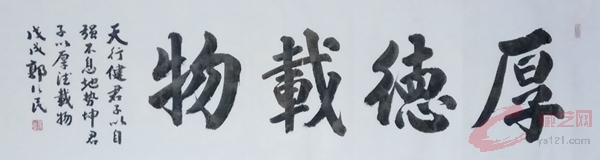 厚德載物
天行健君子以自
强不息地势坤君
子以厚德載物
戊戌郭民
艺网
ys121.com